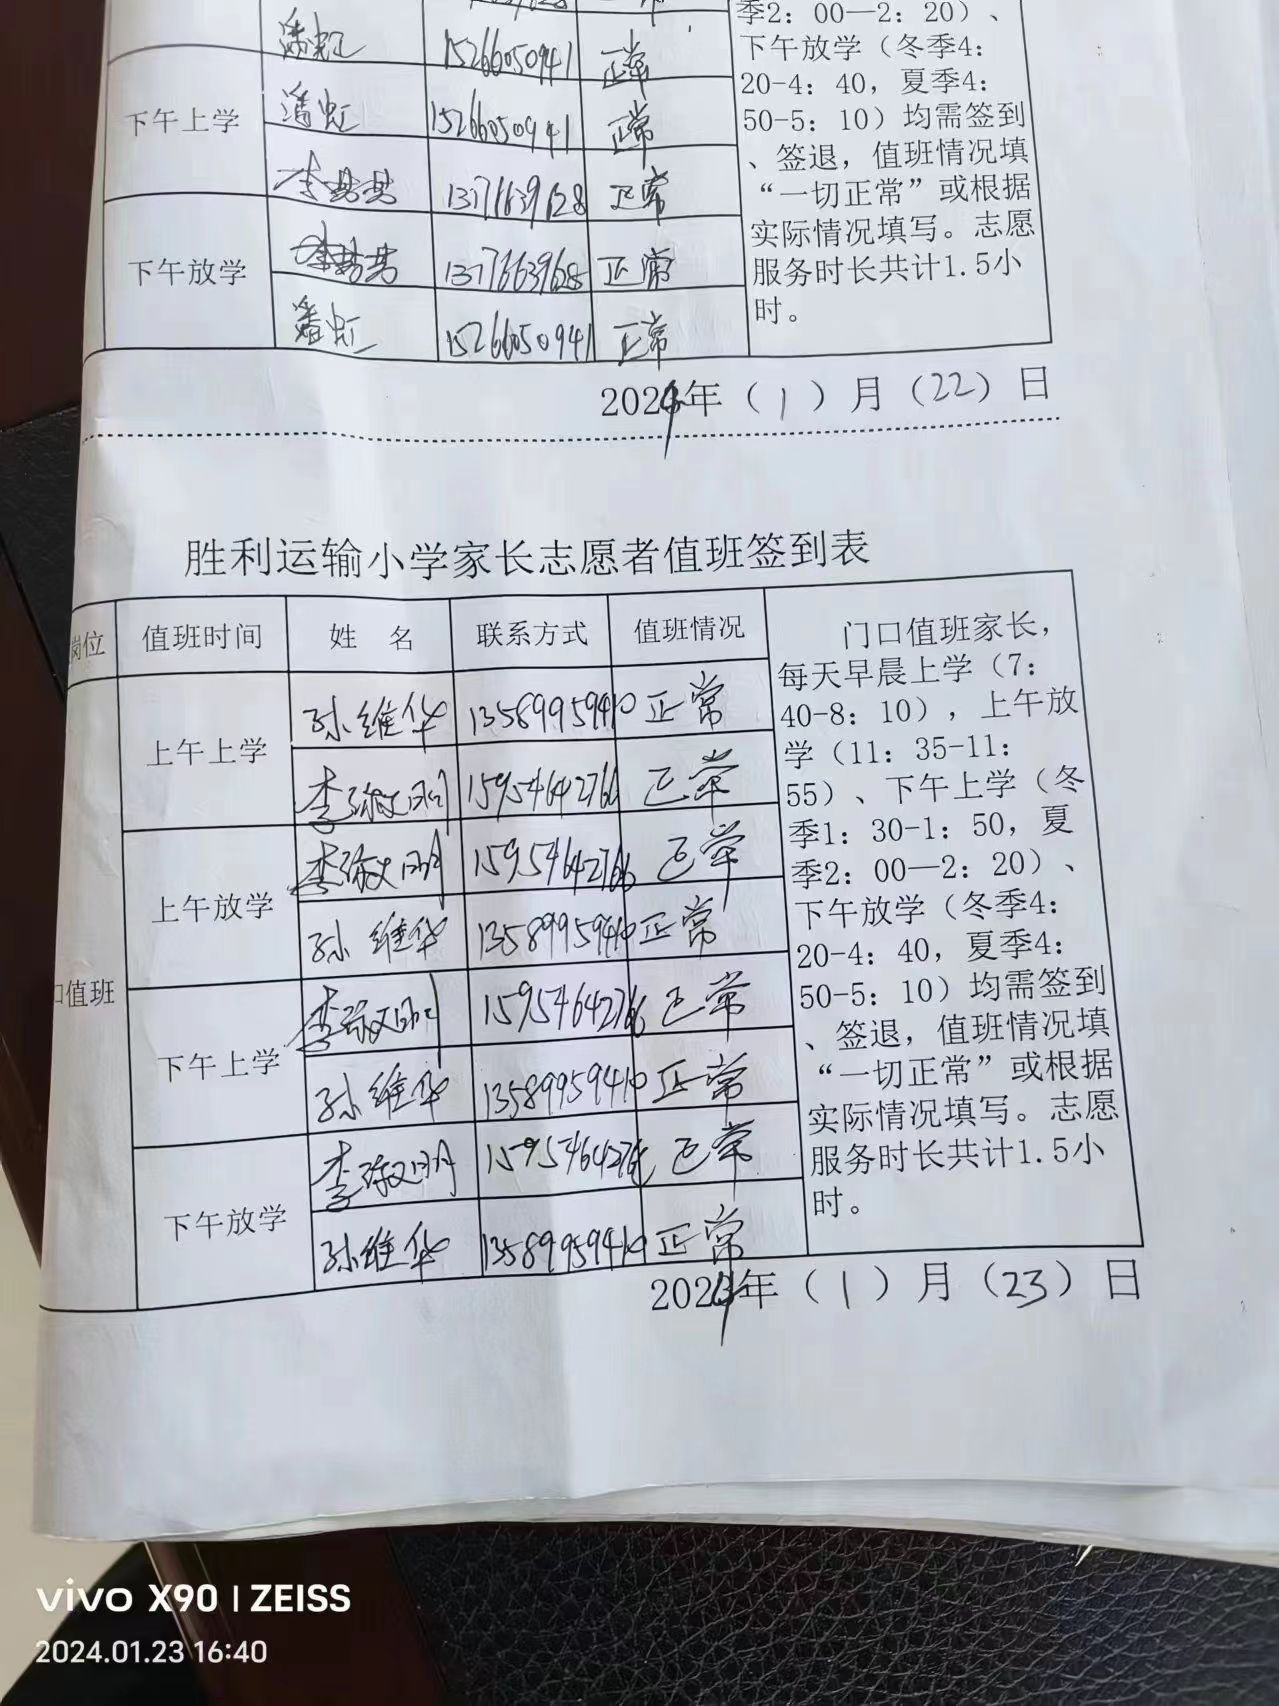 季2：00—2：20）、
潘虹 15266050941 正常 下午放学（冬季4：
20-4：40，夏季4：
下午上学 潘虹 15266050941 正常 50-5：10）均需签到
、签退，值班情况填
李君君 13776639628 正常 “一切正常”或根据
实际情况填写。志愿
下午放学 李君君 13776639628 正常 服务时长共计1.5小
时。
潘虹 15266050941 正常
2024年（1）月（22）日
胜利运输小学家长志愿者值班签到表
岗位 值班时间 姓 名 联系方式 值班情况
门口值班家长，
每天早晨上学（7：
40-8：10），上午放
学（11：35-11：
55）、下午上学（冬
季1：30-1：50，夏
季2：00—2：20）、
下午放学（冬季4：
20-4：40，夏季4：
50-5：10）均需签到
、签退，值班情况填
“一切正常”或根据
实际情况填写。志愿
服务时长共计1.5小
时。
口值班
上午上学 孙维华 13589959410 正常
李敬明 15954642766 正常
上午放学 李敬明 15954642766 正常
孙维华 13589959410 正常
下午上学 李敬明 15954642766 正常
孙维华 13589959410 正常
下午放学 李敬明 1595464276 正常
孙维华 13589959410 正常
2024年（1）月（23）日
vivo X90 | ZEISS
2024.01.23 16:40